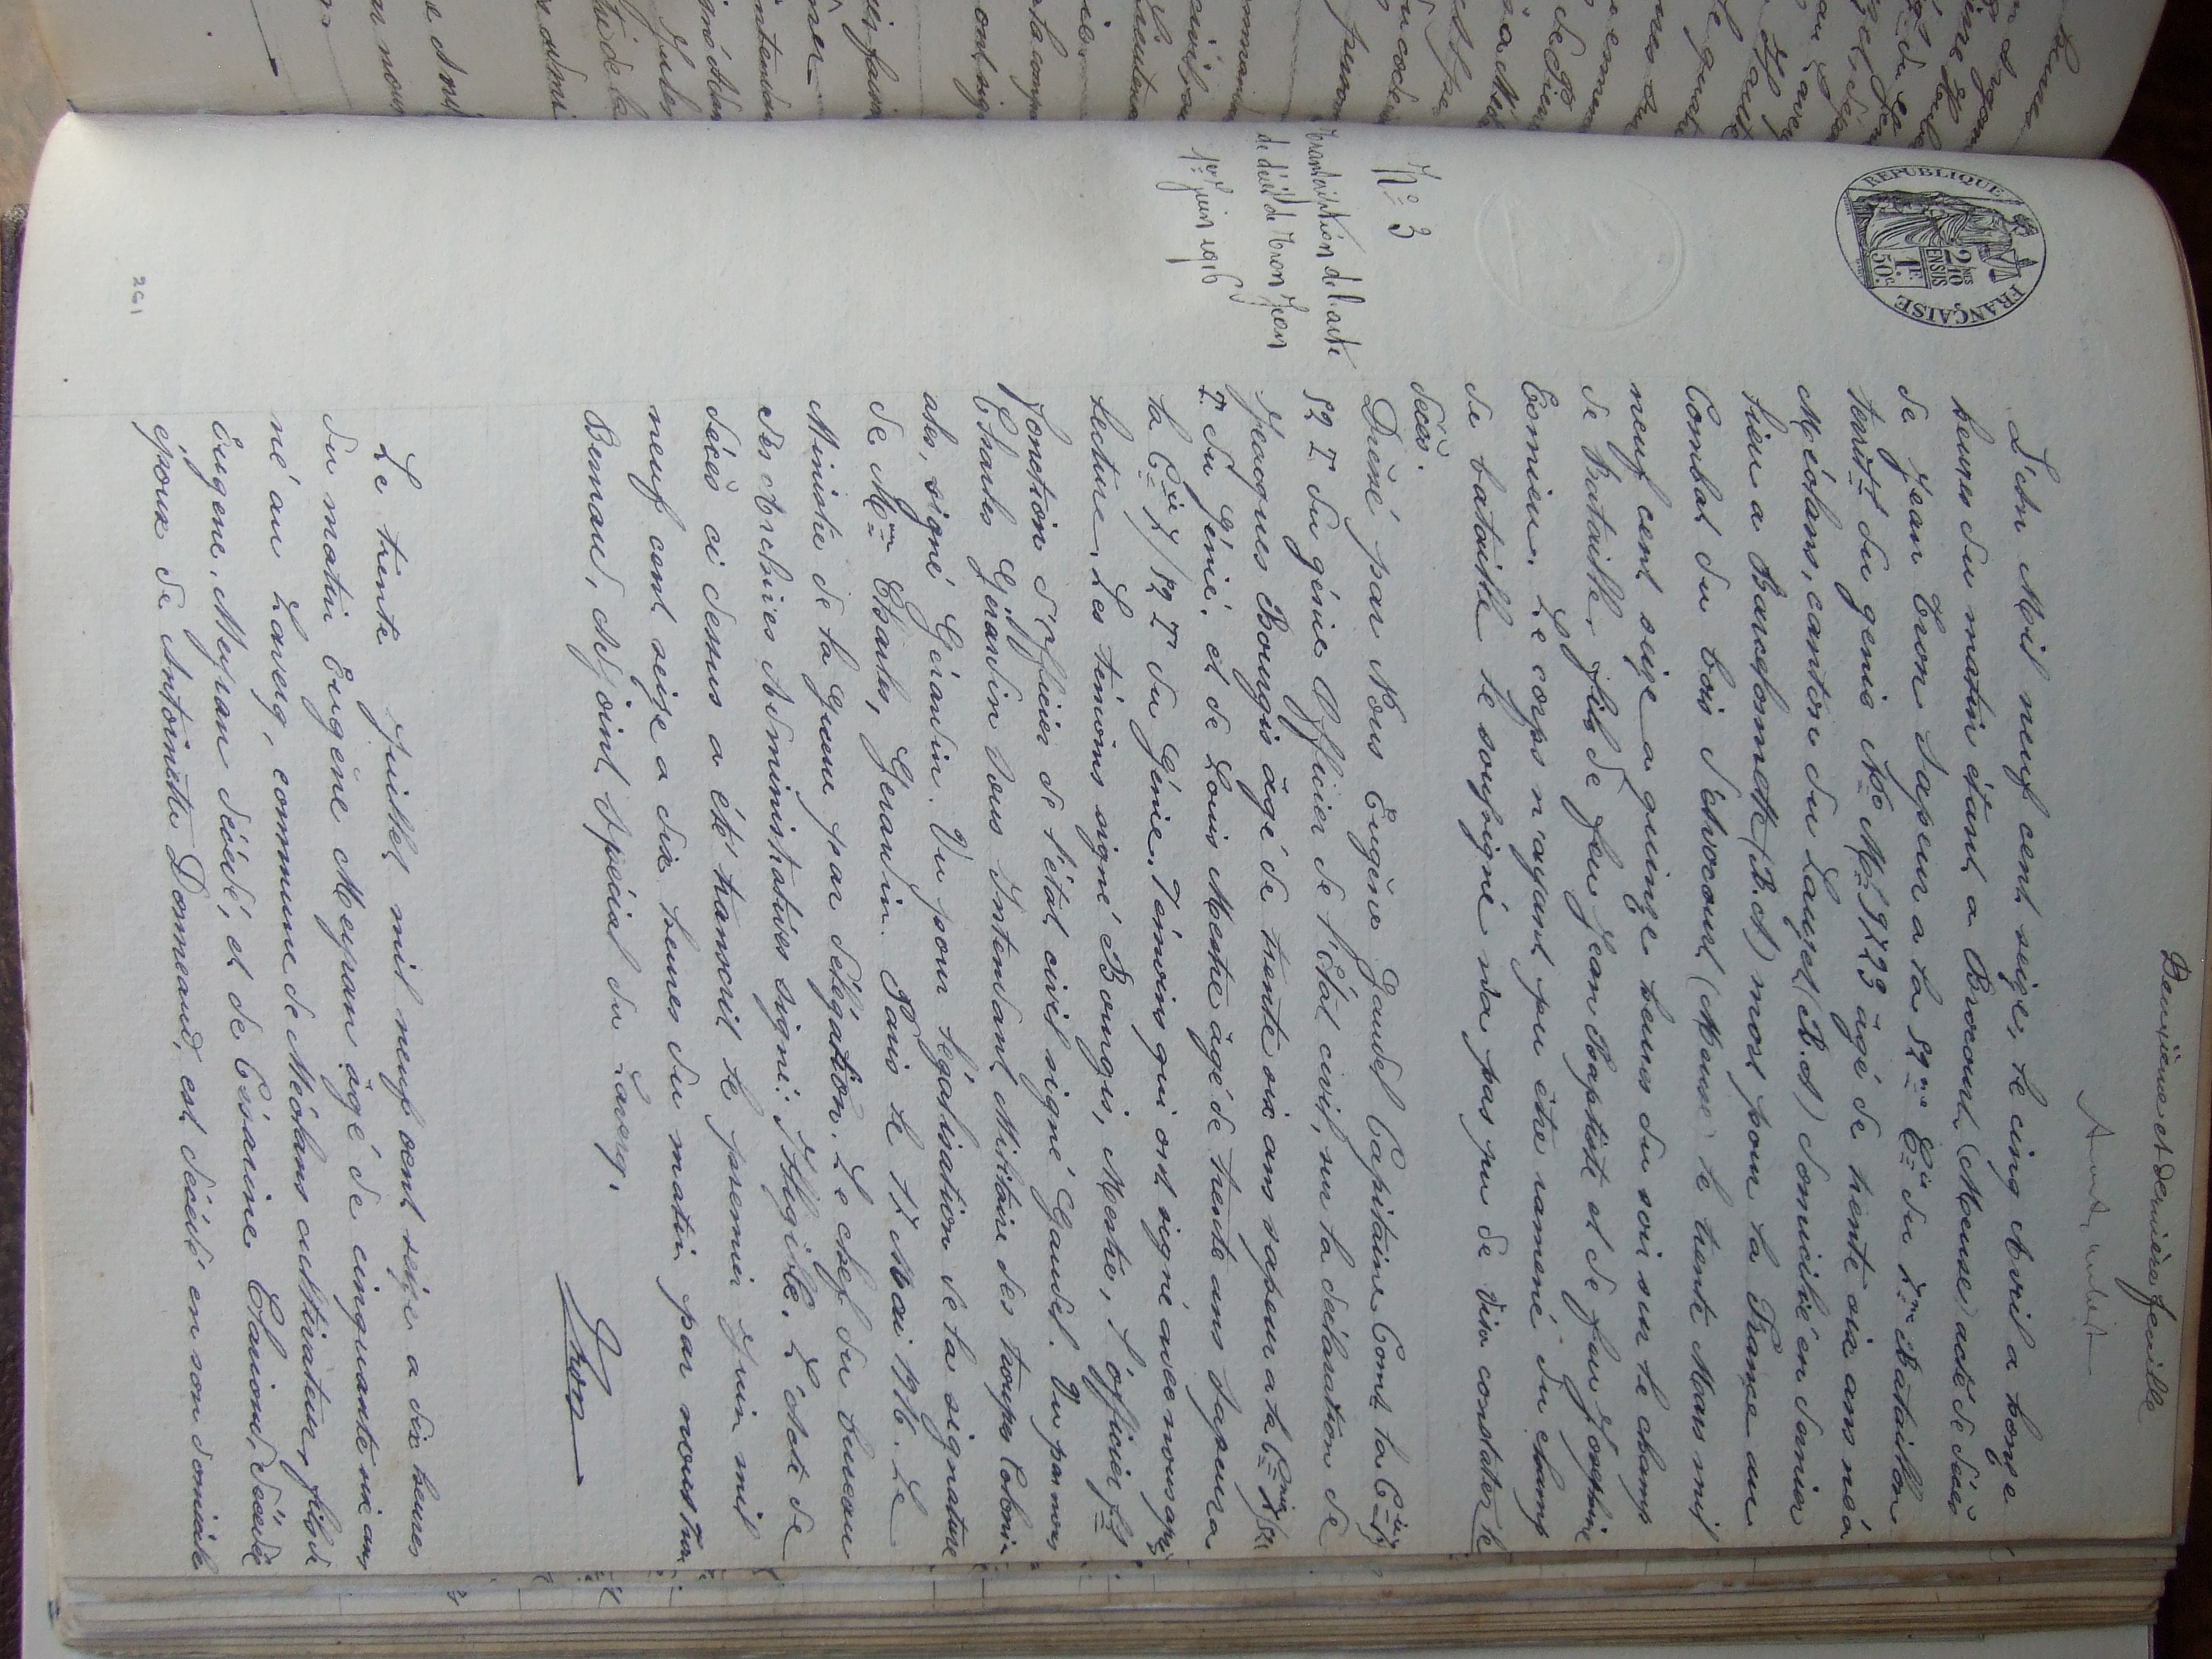 Deuxième et dernière feuille
RÉPUBLIQUE FRANÇAISE
2 MES
10
EN SUS
1 F.
50 c.
L'An Mil neuf cent seize, le cinq Avril a honze
heures du matin étant a Brocourt (Meuse) acte de décès
de Jean Tron Sapeur a la 52me Cie du 7me Bataillon
territ. du génie No Ml 9723 âgé de trente six ans né à
Méolans, canton du Lauzet (B.A) domicilié en dernier
lieu a Barcelonnette (B.A) mort pour la France au
Combat du bois d'Avocourt (Meuse) le trente Mars mil
neuf cent seize a quinze heures du soir sur le champ
de Bataille, fils de feu Jean Baptiste et de feu Joséphine
Esmieu. Le corps n'ayant pu être ramené du champ
de bataille le soussigné n'a pas pu de viso constater le
décès.
No 3
Transcription de l'acte
de décès de Tron Jean
1er Juin 1916
Dressé par Nous Eugène Gaudel Capitaine Comt la Cie 7/
52 T du génie Officier de l'Etat civil, sur la déclaration de
Jacques Bougis âgé de trente six ans sapeur a la Cie 7/52
T. du Génie, et de Louis Mestre âgé de trente ans sapeur a
la Cie 7/52 T du Génie. Témoins qui ont signé avec nous après
lecture. Les témoins signé Bougis, Mestre, l'officier ft
fonction d'officier de l'état civil signé Gaudel. Vu par nous
Charles Gérardin Sous Intendant Militaire des troupes Coloni
ales, signé Gérardin. Vu pour légalisation de la signature
de Mr Charles, Gérardin. Paris le 17 Mai 1916. Le
Ministre de la Guerre par délégation. Le chef du bureau
des Archives Administratives signé: Illigible. L'Acte de
décès ci dessus a été transcrit le premier Juin mil
neuf cent seize a dix heures du matin par nous Tron
Bernard, Adjoint Spécial du Laverq.
Tron
Le trente Juillet mil neuf cent seize a dix heures
du matin Eugène Meyran âgé de cinquante six ans
né au Laverq, commune de Méolans cultivateur, fils de
Eugène, Meyran décédé, et de Césarine Clariond, décédée
époux de Antoinette Donneaud, est décédé en son domicile
261